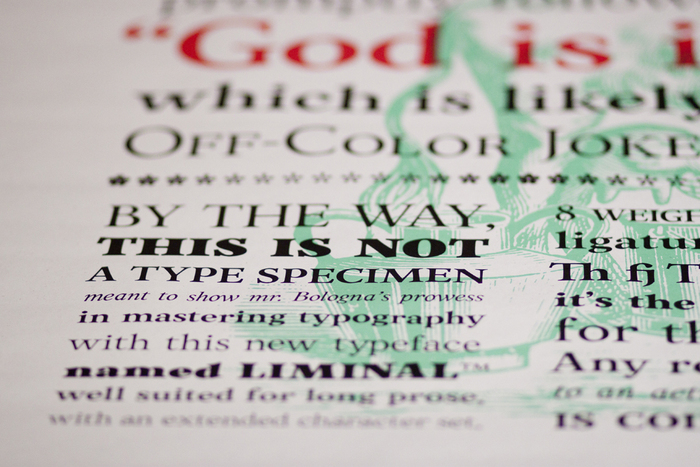 "God is i
which is likely
OFF-COLOR JOKE
BY THE WAY,
THIS IS NOT
A TYPE SPECIMEN
meant to show mr. Bologna's prowess
in mastering typography
with this new typeface
named LIMINAL™
well suited for long prose,
with an extended character set.
8 WEIGH
ligatu
Th fj T
it's the
for th
Any re
to an act
IS CO